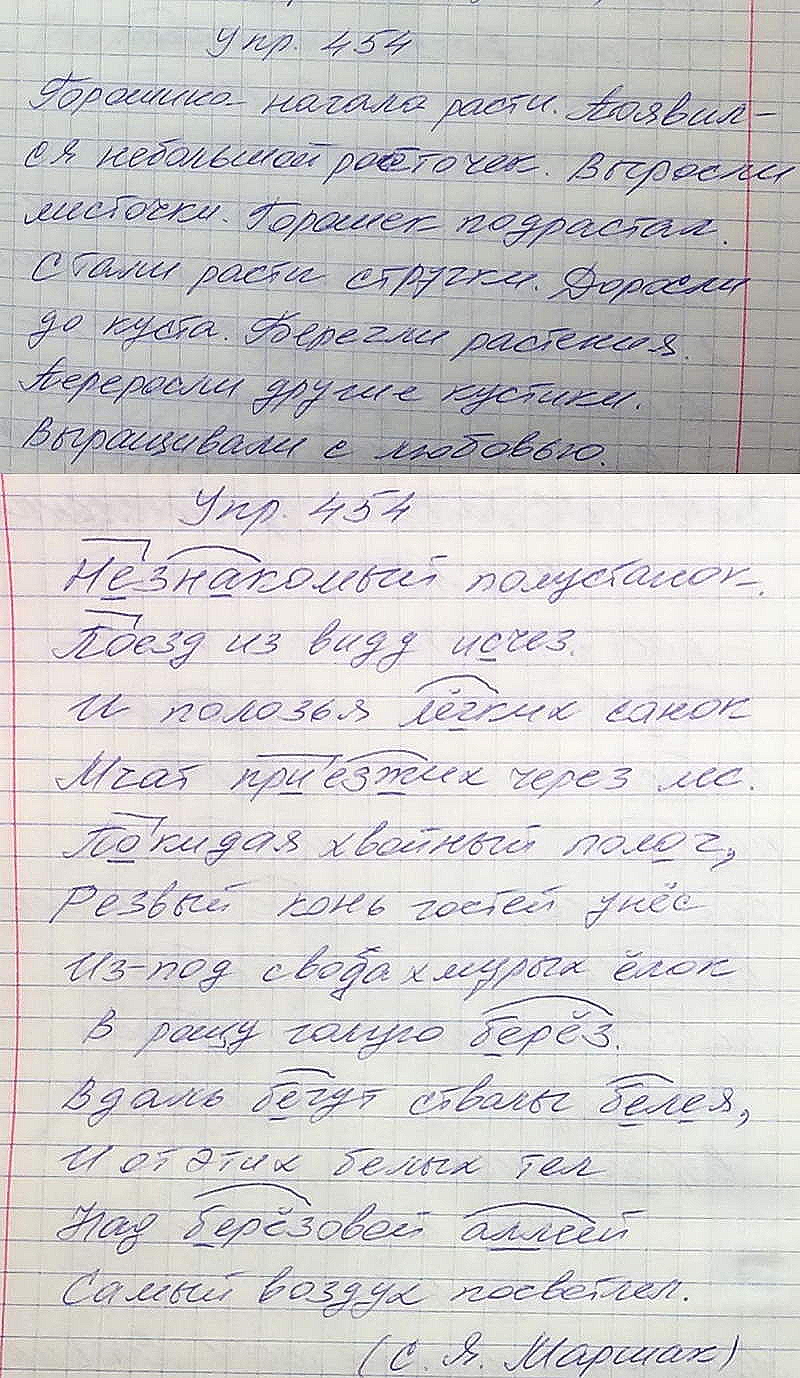 Упр. 454
Горошина начала расти. Появил-
ся небольшой росточек. Выросли
листочки. Горошек подрастал.
Стали расти стручки. Доросли
до куста. Берегли растения.
Переросли другие кустики.
Выращивали с любовью.
Упр. 454
Незнакомый полустанок.
Поезд из виду исчез.
И полозья лёгких санок
Мчат приезжих через лес.
Покидая хвойный полог,
Резвый конь гостей унёс
Из-под свода хмурых ёлок
В рощу голую берёз.
Вдаль бегут стволы белея,
И от этих белых тел
Над берёзовой аллеей
Самый воздух посветлел.
(С. Я. Маршак)